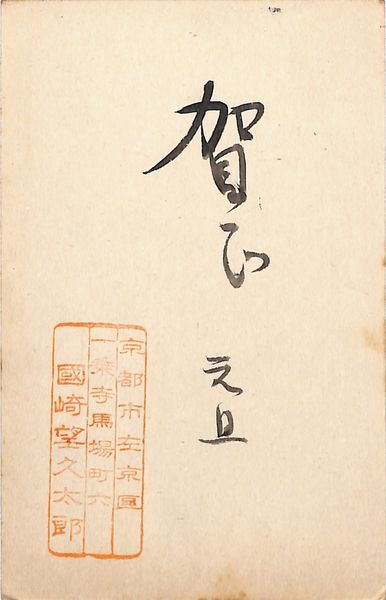 賀正
元旦
京都市左京區
一乗寺馬場町六
國崎望久太郎